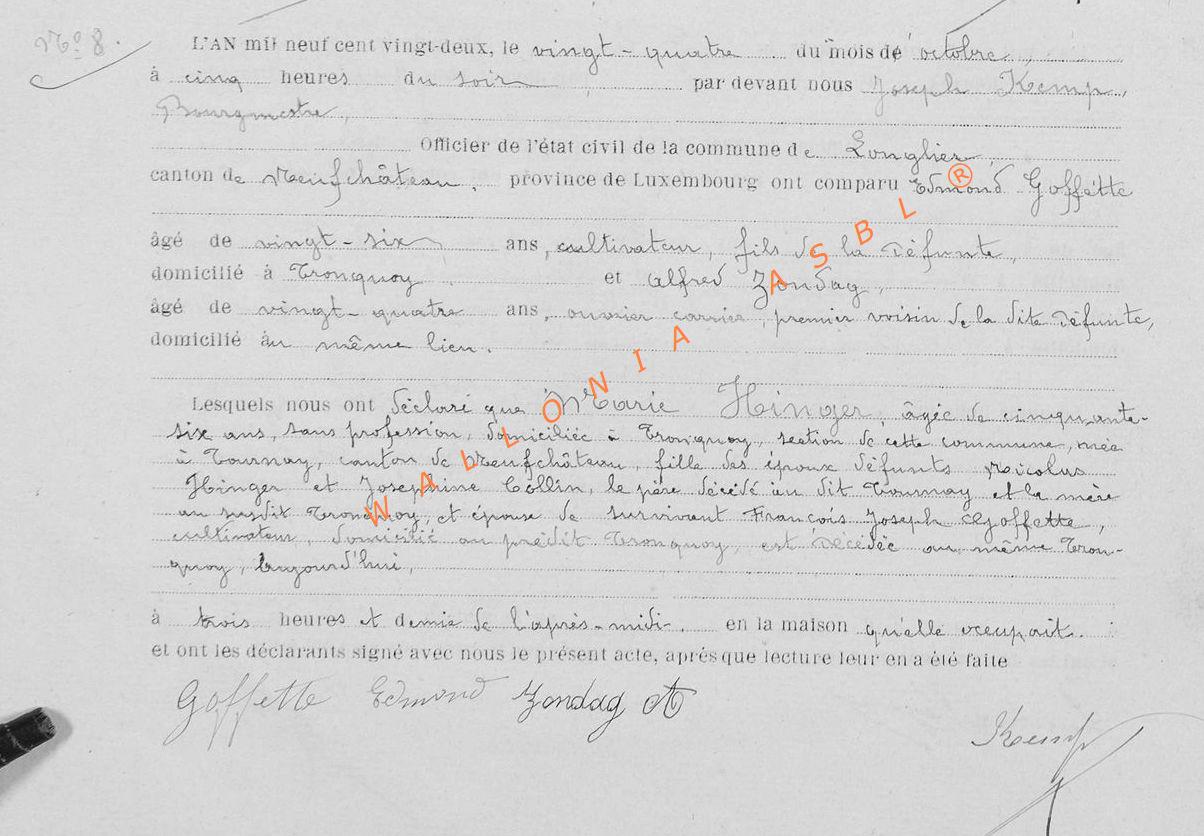 N° 8.
L'AN mil neuf cent vingt-deux, le vingt-quatre du mois de octobre,
à cinq heures du soir, par devant nous Joseph Kemp,
Bourgmestre,
Officier de l'état civil de la commune de Longlier,
canton de Neufchâteau, province de Luxembourg ont comparu Edmond Goffette
âgé de vingt-six ans, cultivateur, fils de la défunte,
domicilié à Tronquoy et Alfred Zondag,
âgé de vingt-quatre ans, ouvrier carrier, premier voisin de la dite défunte,
domicilié au même lieu.
Lesquels nous ont déclaré que Marie Hinger, âgée de cinquante-
six ans, sans profession, domiciliée à Tronquoy, section de cette commune, née
à Tournay, canton de Neufchâteau, fille des époux défunts Nicolas
Hinger et Josephine Collin, le père décédé au dit Tournay et la mère
au susdit Tronquoy, et épouse de survivant François Joseph Goffette,
cultivateur, domicilié au prédit Tronquoy, est décédée au même Tron-
quoy, aujourd'hui,
à trois heures et demie de l'après-midi. en la maison qu'elle occupait.
et ont les déclarants signé avec nous le présent acte, après que lecture leur en a été faite
Goffette Edmond Zondag A
Kemp
WALLONIA ASBL ®